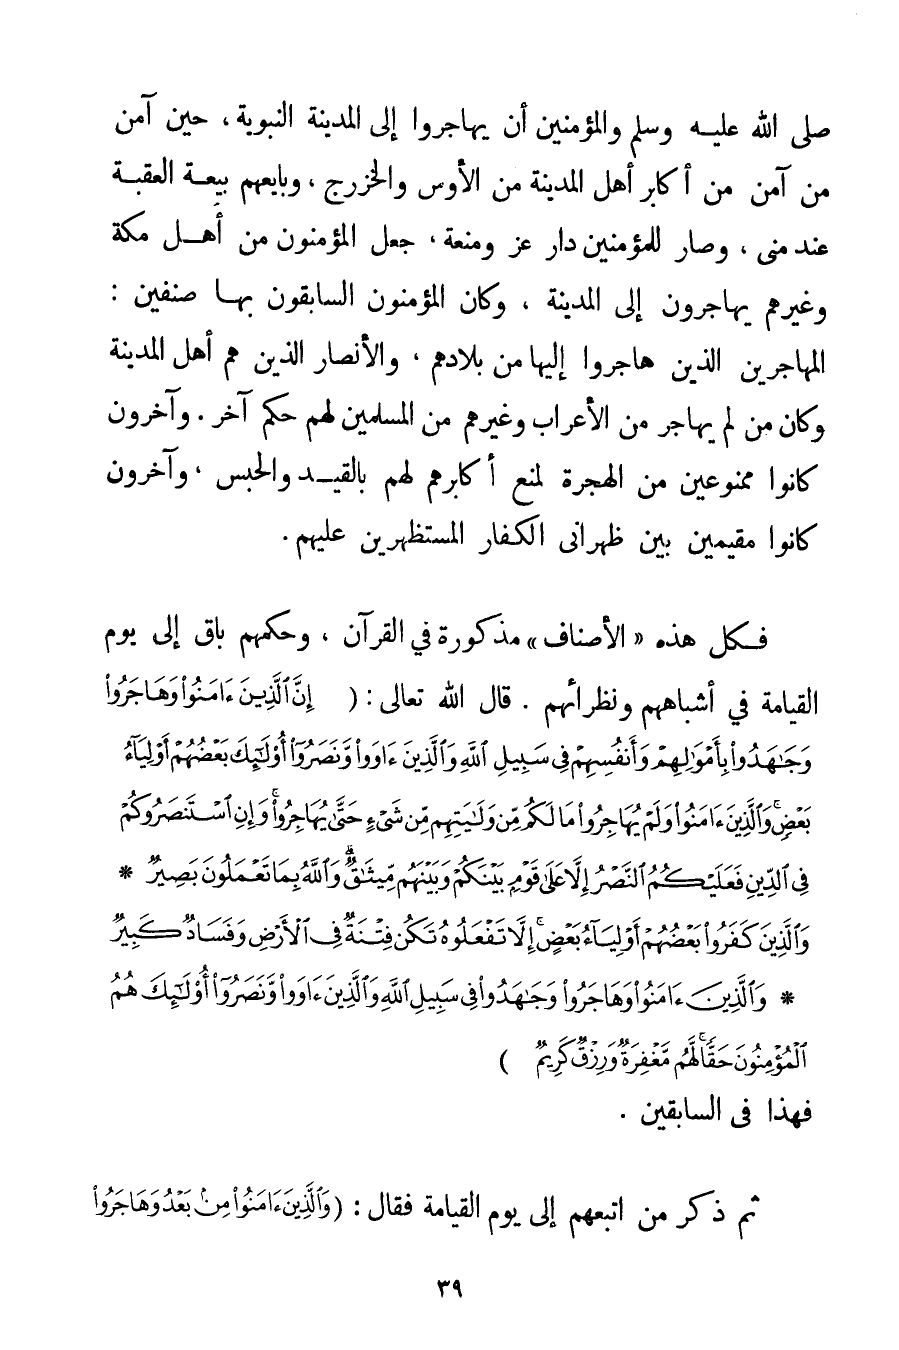 صلى الله عليه وسلم والمؤمنين أن يهاجروا إلى المدينة النبوية ، حين آمن
من آمن من أكابر أهل المدينة من الأوس والخزرج ، وبايعهم بيعة العقبة
عند منى ، وصار للمؤمنين دار عز ومنعة ، جعل المؤمنون من أهل مكة
وغيرهم يهاجرون إلى المدينة ، وكان المؤمنون السابقون بها صنفين :
المهاجرين الذين هاجروا إليها من بلادهم ، والأنصار الذين هم أهل المدينة
وكان من لم يهاجر من الأعراب وغيرهم من المسلمين لهم حكم آخر . وآخرون
كانوا ممنوعين من الهجرة لمنع أكابرهم لهم بالقيد والحبس ، وآخرون
كانوا مقيمين بين ظهرانى الكفار المستظهرين عليهم .
فكل هذه « الأصناف » مذكورة في القرآن ، وحكمهم باق إلى يوم
القيامة في أشباههم ونظرائهم . قال الله تعالى : ( إِنَّ ٱلَّذِينَ ءَامَنُوا۟ وَهَاجَرُوا۟
وَجَـٰهَدُوا۟ بِأَمْوَٰلِهِمْ وَأَنفُسِهِمْ فِى سَبِيلِ ٱللَّهِ وَٱلَّذِينَ ءَاوَوا۟ وَّنَصَرُوٓا۟ أُو۟لَـٰٓئِكَ بَعْضُهُمْ أَوْلِيَآءُ
بَعْضٍ ۚ وَٱلَّذِينَ ءَامَنُوا۟ وَلَمْ يُهَاجِرُوا۟ مَا لَكُم مِّن وَلَـٰيَتِهِم مِّن شَىْءٍ حَتَّىٰ يُهَاجِرُوا۟ ۚ وَإِنِ ٱسْتَنصَرُوكُمْ
فِى ٱلدِّينِ فَعَلَيْكُمُ ٱلنَّصْرُ إِلَّا عَلَىٰ قَوْمٍۭ بَيْنَكُمْ وَبَيْنَهُم مِّيثَـٰقٌ ۗ وَٱللَّهُ بِمَا تَعْمَلُونَ بَصِيرٌ *
وَٱلَّذِينَ كَفَرُوا۟ بَعْضُهُمْ أَوْلِيَآءُ بَعْضٍ ۚ إِلَّا تَفْعَلُوهُ تَكُن فِتْنَةٌ فِى ٱلْأَرْضِ وَفَسَادٌ كَبِيرٌ
* وَٱلَّذِينَ ءَامَنُوا۟ وَهَاجَرُوا۟ وَجَـٰهَدُوا۟ فِى سَبِيلِ ٱللَّهِ وَٱلَّذِينَ ءَاوَوا۟ وَّنَصَرُوٓا۟ أُو۟لَـٰٓئِكَ هُمُ
ٱلْمُؤْمِنُونَ حَقًّا ۚ لَّهُم مَّغْفِرَةٌ وَرِزْقٌ كَرِيمٌ )
فهذا فى السابقين .
ثم ذكر من اتبعهم إلى يوم القيامة فقال : ( وَٱلَّذِينَ ءَامَنُوا۟ مِنۢ بَعْدُ وَهَاجَرُوا۟
٣٩